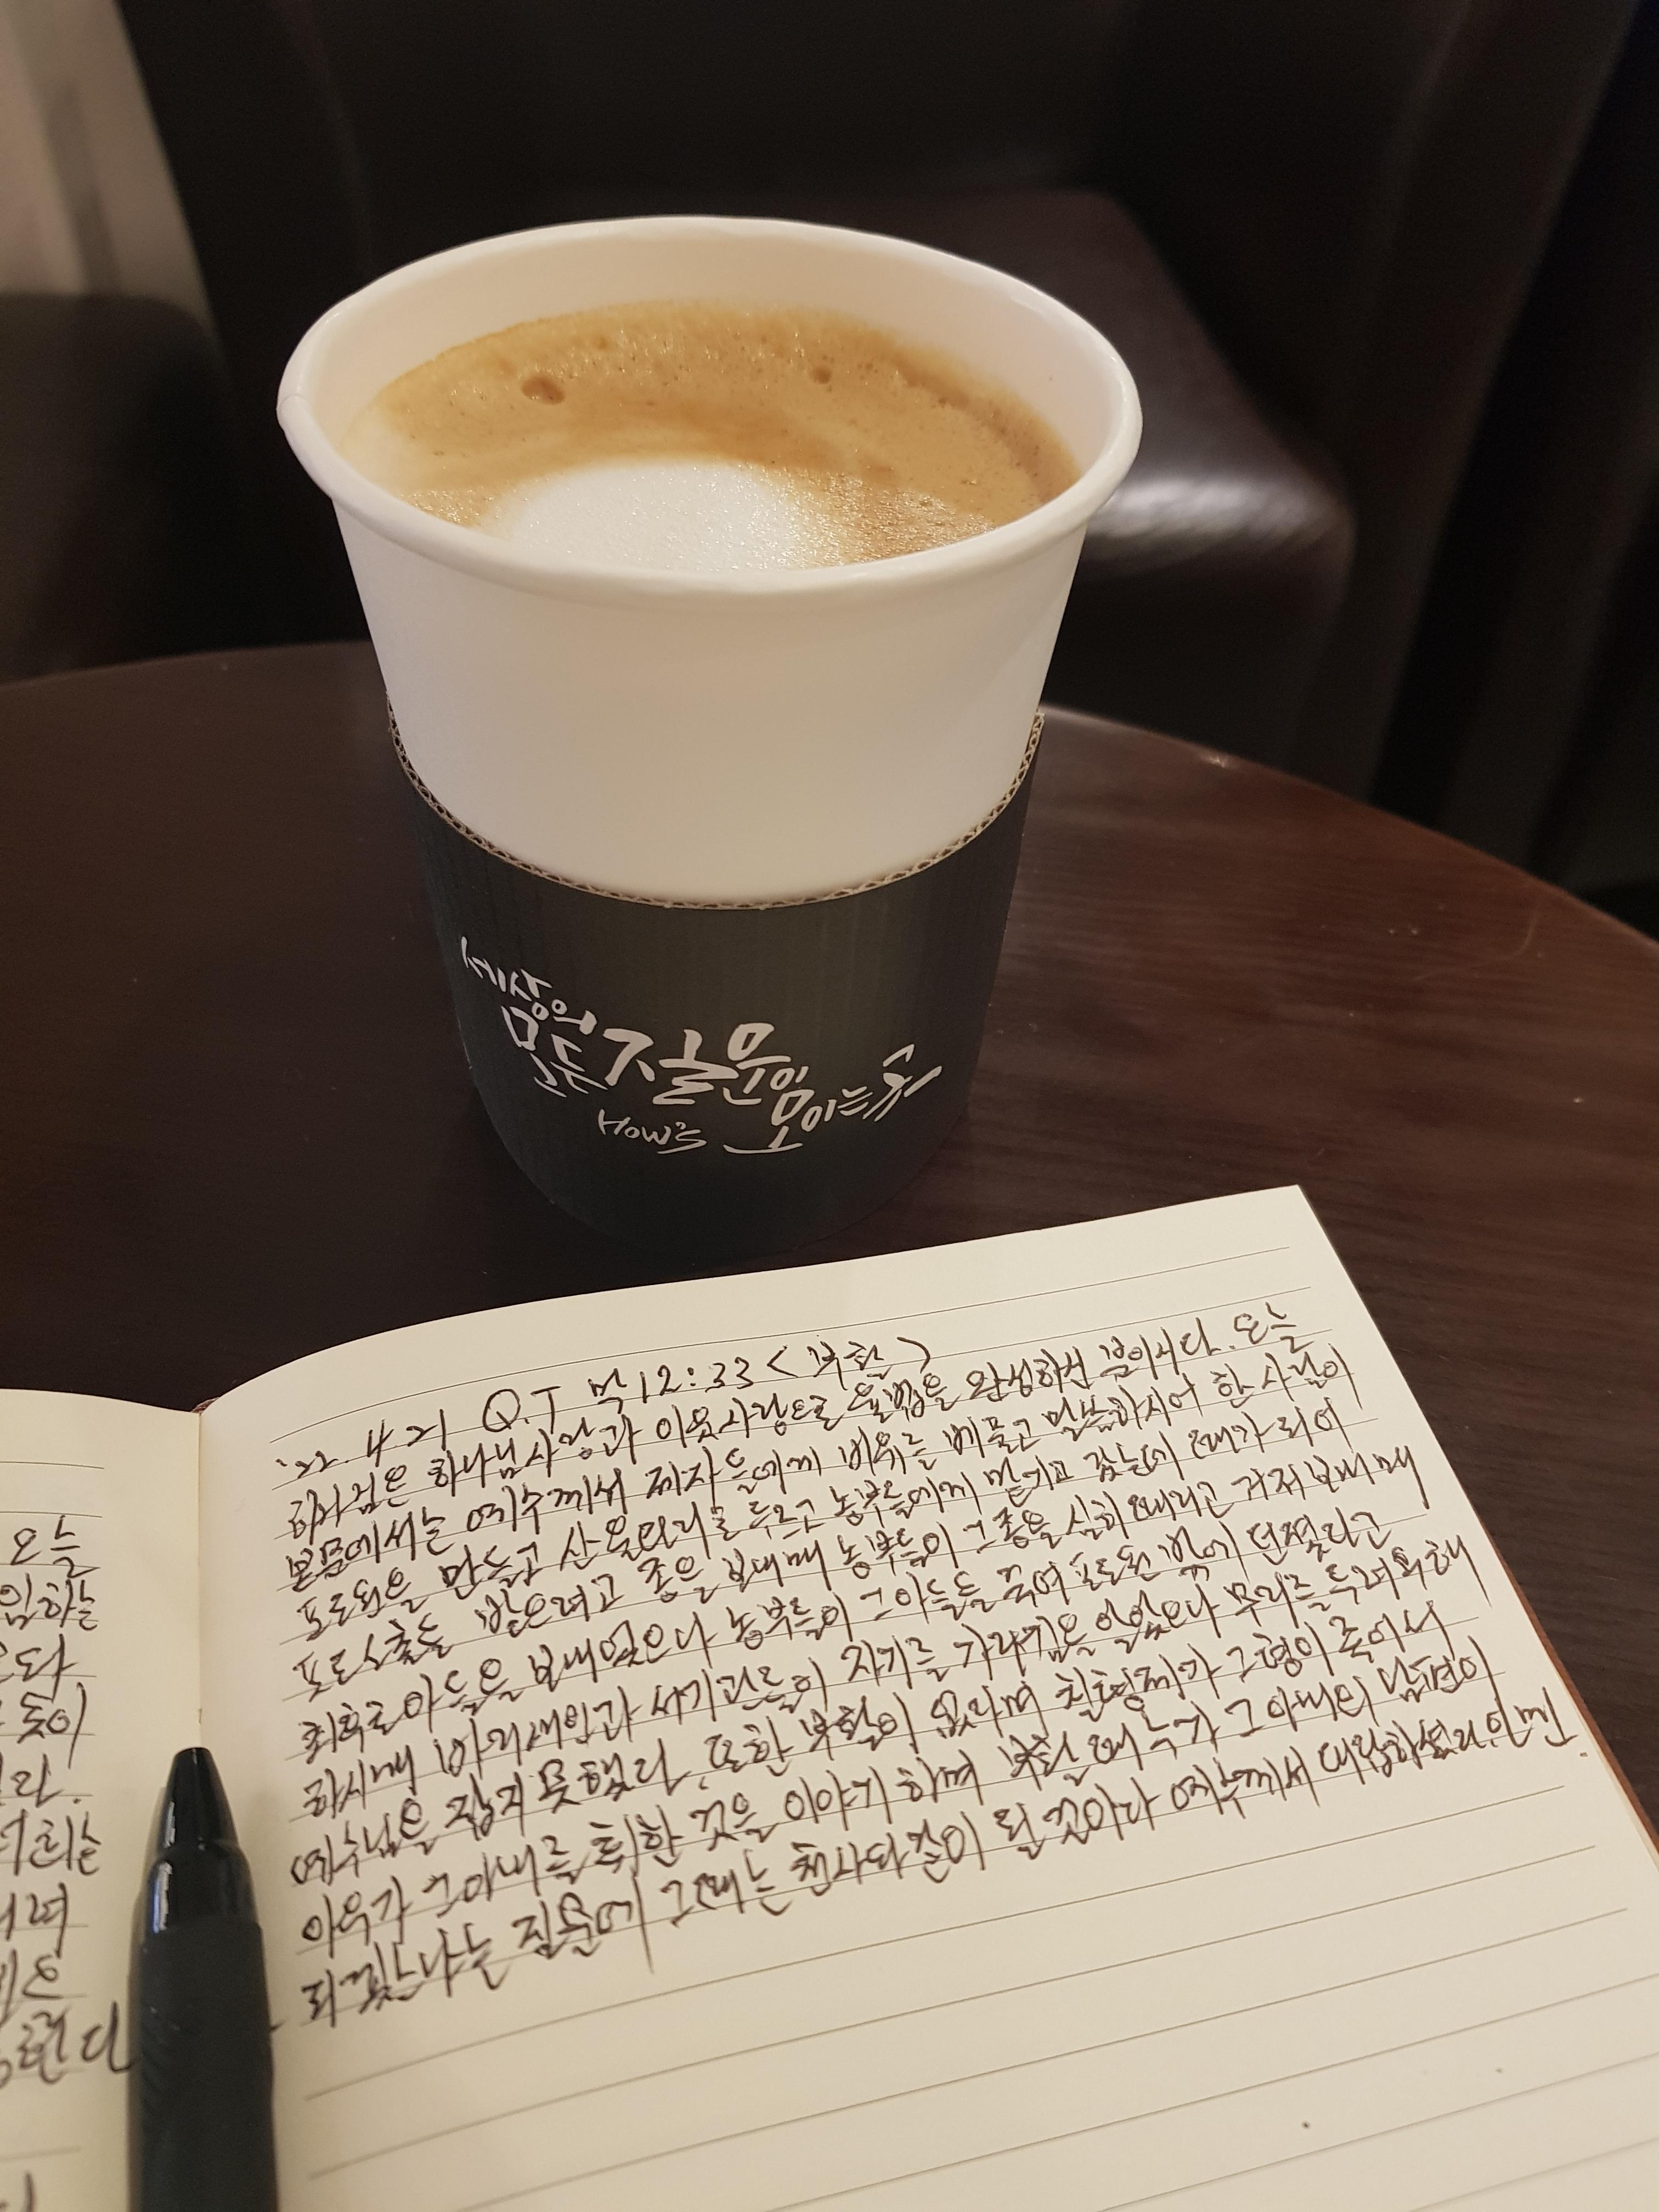 세상의
모든 질문이
모이는 곳
How's
'22. 4. 21 Q.T 막 12:33 < 부활 >
하나님 사랑과 이웃사랑으로 율법을 완성하신 분이시다. 오늘
본문에서는 예수께서 제자들에게 비유를 베풀고 말씀하시어 한 사람이
포도원을 만들고 산울타리를 두르고 농부들에게 맡기고 갔는데 때가 되어
포도소출을 받으려고 종을 보내매 농부들이 그 종을 심히 때리고 거저 보내매
최후로 아들을 보내었으나 농부들이 그 아들을 죽여 포도원 밖에 던졌라고
하시매 바리새인과 서기관들이 자기를 가라킴을 알았으나 무리를 두려워해
예수님을 잡지 못했다. 또한 부활이 없라며 칠형제가 그 형이 죽어서
아우가 그 아내를 취한 것을 이야기하며 부활 때 누가 그 아내의 남편이
되겠느냐는 질문에 그때는 천사와 같이 될 것이다 예수께서 대답하셨다. 아멘.
오늘